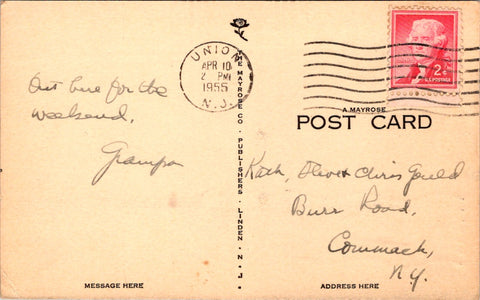 UNION
APR 10
2 PM
1955
N.J.
2¢
U.S. POSTAGE
THE MAYROSE CO. · PUBLISHERS · LINDEN · N · J ·
A MAYROSE
POST CARD
Out here for the
weekend,
Grampa
Kath, Oliver & Chris Gould
Burr Road,
Commack,
N.Y.
MESSAGE HERE
ADDRESS HERE